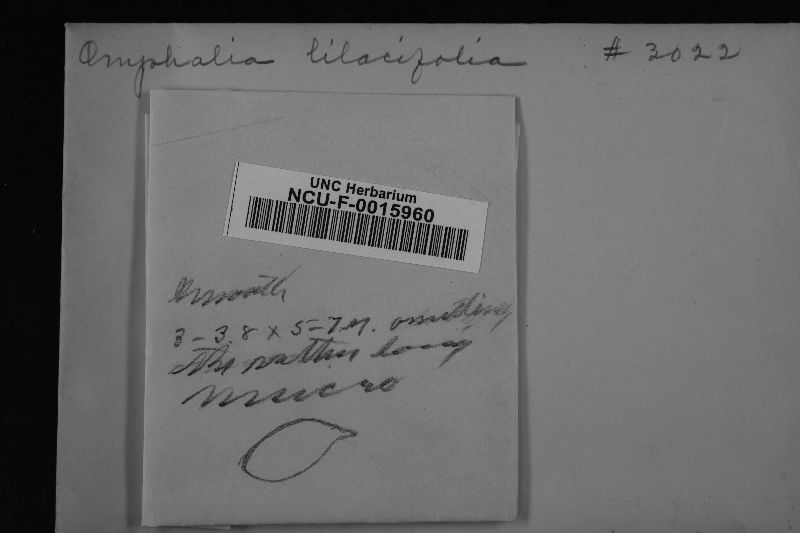 Omphalia lilacifolia # 3022
UNC Herbarium
NCU-F-0015960
smooth
3-3.8 x 5-7 μ. omitting
the rather long
mucro